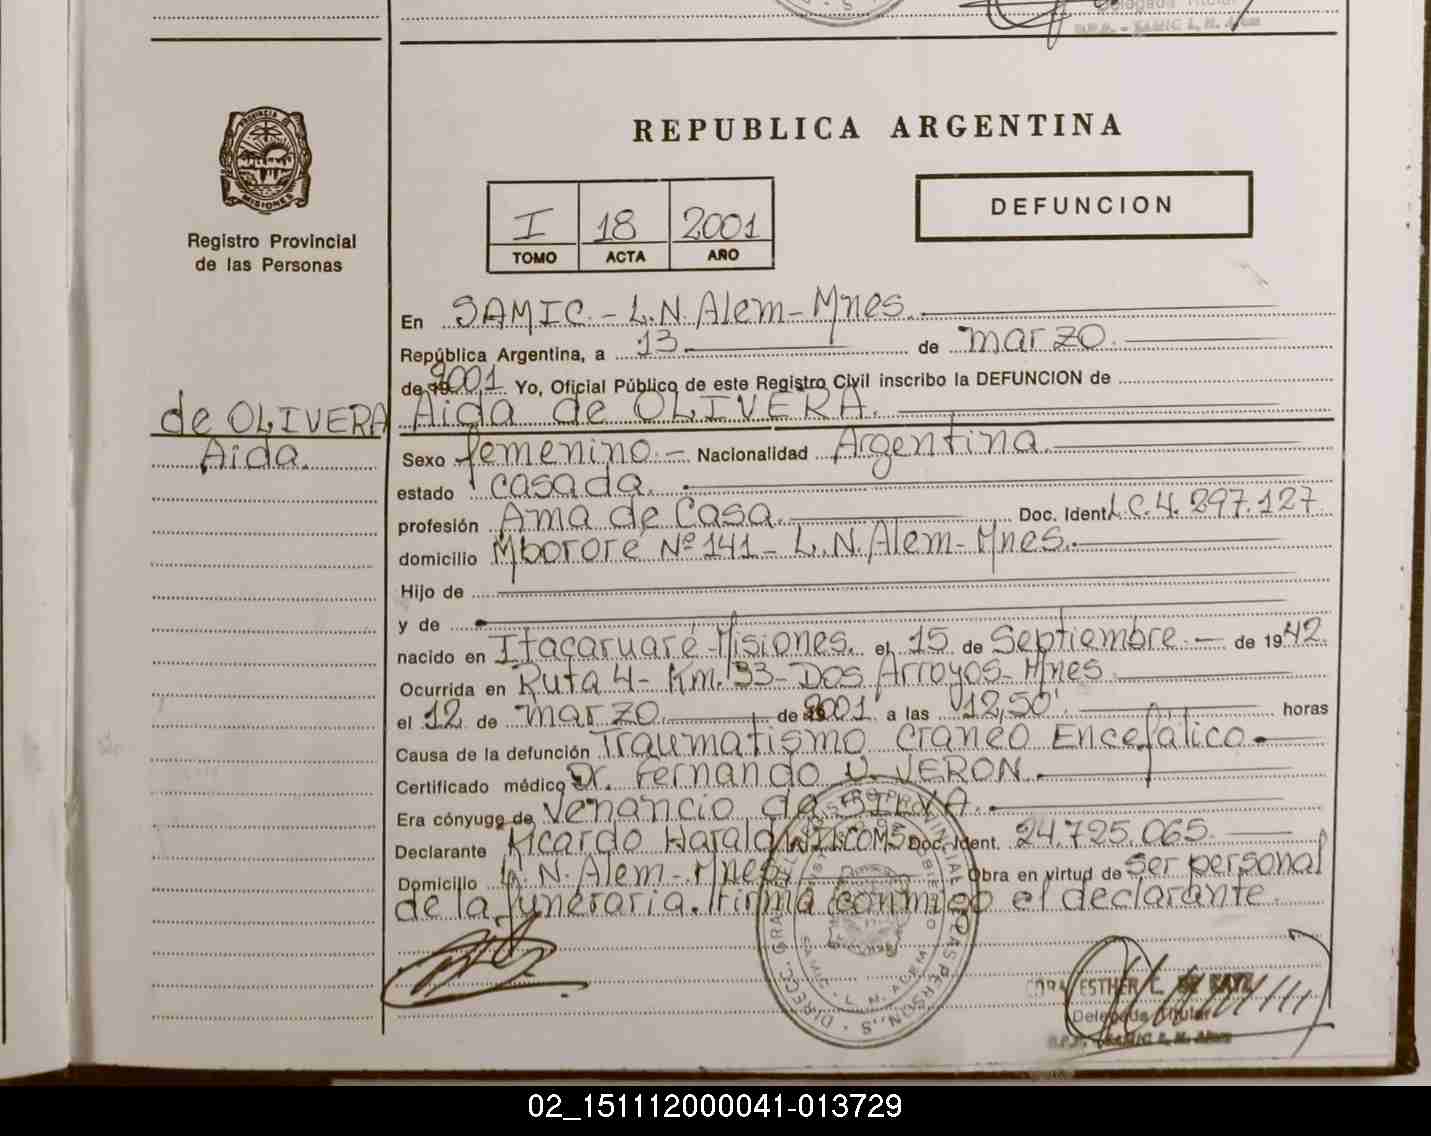 Delegada Titular
D.P.P. - SAMIC L. N. Alem
PROVINCIA DE
MISIONES
Registro Provincial
de las Personas
REPUBLICA ARGENTINA
I 18 2001
TOMO ACTA AÑO
DEFUNCION
En SAMIC.- L.N. Alem- Mnes.
República Argentina, a 13 de marzo.
de 2001 Yo, Oficial Público de este Registro Civil inscribo la DEFUNCION de
de OLIVERA
Aida.
Aida de OLIVERA.
Sexo femenino.- Nacionalidad Argentina.
estado casada.
profesión Ama de Casa. Doc. Ident. L.C. 4.297.127
domicilio Mbororé Nº 141- L.N. Alem- Mnes.
Hijo de
y de
nacido en Itacaruaré-Misiones. el 15 de Septiembre.- de 1942.
Ocurrida en Ruta 4- Km. 33- Dos Arroyos- Mnes
el 12 de marzo de 2001 a las 12,50'. horas
Causa de la defunción Traumatismo craneo Encefálico.
Certificado médico Dr. Fernando V. VERON.
Era cónyuge de Venancio da SILVA.
Declarante Ricardo Harald Doc. Ident. 24.725.065.
Domicilio L. N. Alem - Mnes. Obra en virtud de Ser personal
de la funeraria. Firma conmigo el declarante.
ESTHER L. DE
Delegada Titular
SAMIC L. N. Alem
DIRECC. GRAL. REGISTRO PROVINCIAL DE LAS PERSONAS
SAMIC - L. N. ALEM
02_151112000041-013729